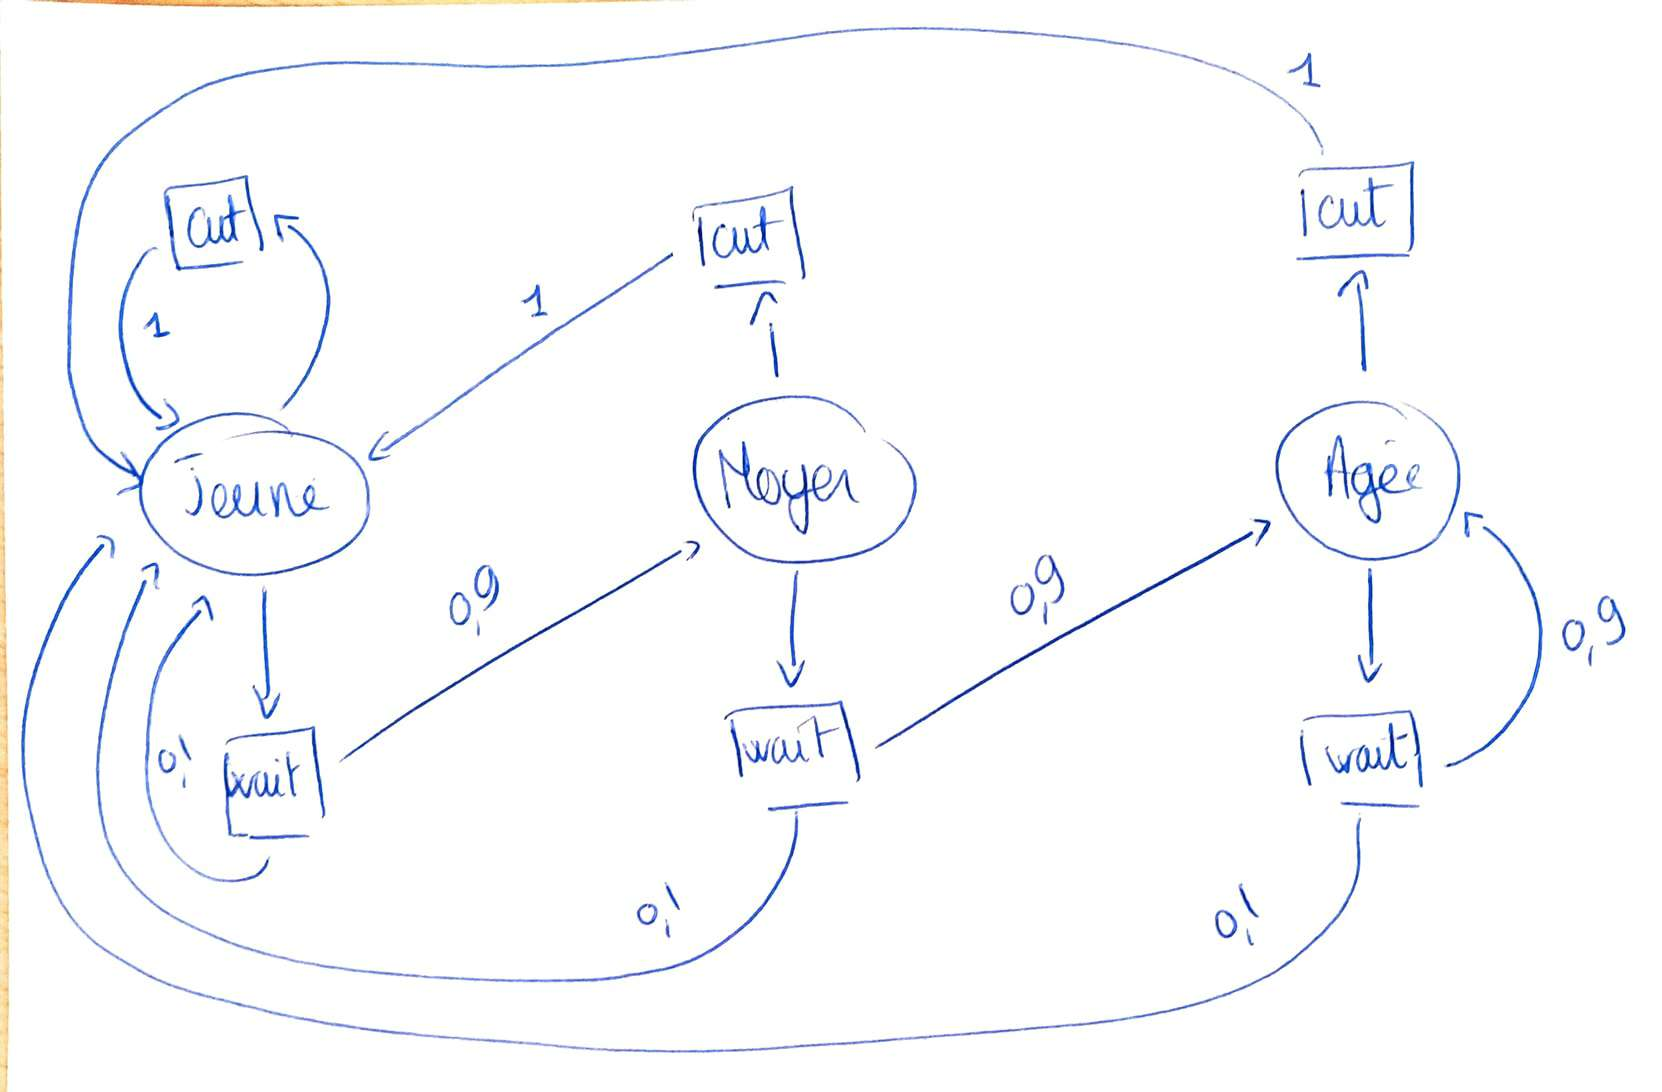 1
cut
cut
cut
1
1
Jeune
Moyen
Agée
0,9
0,9
0,9
0,1
wait
wait
wait
0,1
0,1